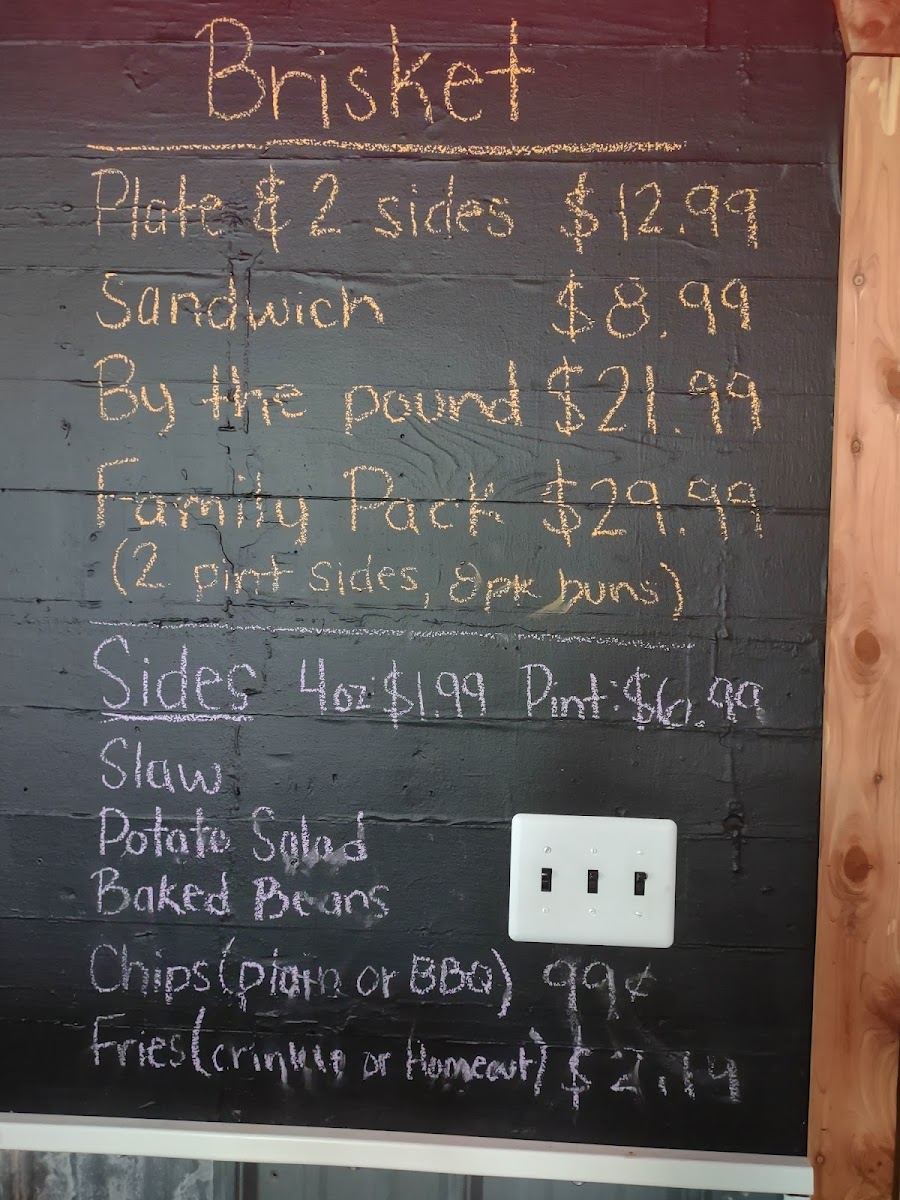 Brisket
Plate & 2 sides $12.99
Sandwich $8.99
By the pound $21.99
Family Pack $29.99
(2 pint sides, 8pk buns)
Sides 4oz:$1.99 Pint:$6.99
Slaw
Potato Salad
Baked Beans
Chips(plain or BBQ) 99¢
Fries(crinkle or Homecut)